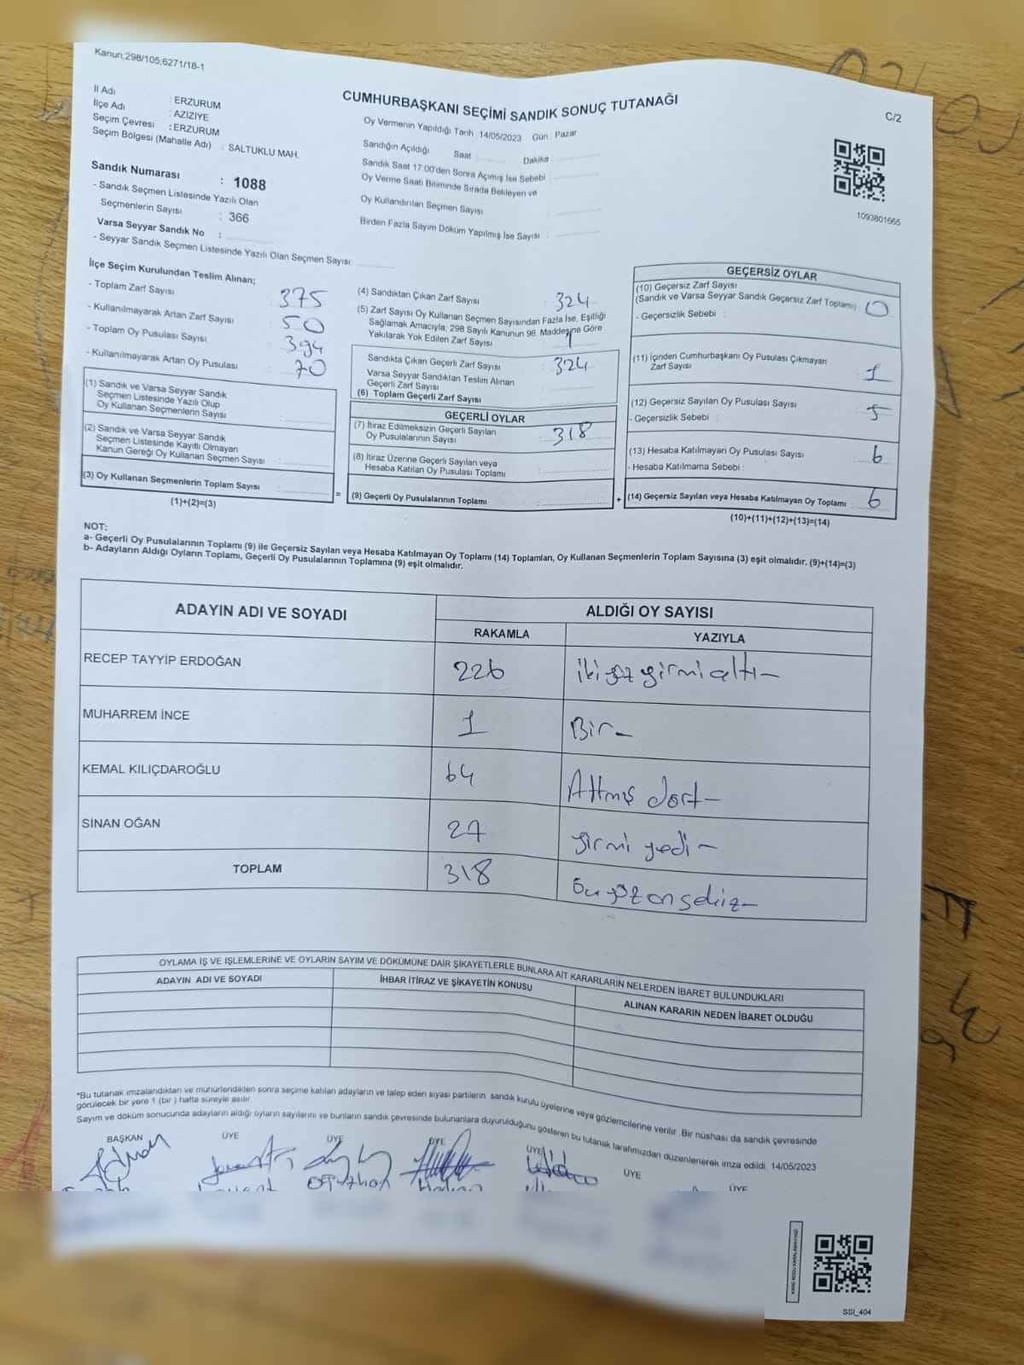 Kanun;298/105;6271/18-1
C/2
CUMHURBAŞKANI SEÇİMİ SANDIK SONUÇ TUTANAĞI
İl Adı : ERZURUM
İlçe Adı : AZİZİYE
Seçim Çevresi : ERZURUM
Seçim Bölgesi (Mahalle Adı) : SALTUKLU MAH.
Sandık Numarası : 1088
- Sandık Seçmen Listesinde Yazılı Olan
Seçmenlerin Sayısı : 366
Varsa Seyyar Sandık No :
- Seyyar Sandık Seçmen Listesinde Yazılı Olan Seçmen Sayısı:
Oy Vermenin Yapıldığı Tarih :14/05/2023 Gün : Pazar
Sandığın Açıldığı Saat Dakika
Sandık Saat 17:00'den Sonra Açımış İse Sebebi :
Oy Verme Saati Bitiminde Sırada Bekleyen ve
Oy Kullandırılan Seçmen Sayısı :
Birden Fazla Sayım Döküm Yapılmış İse Sayısı :
1090801665
İlçe Seçim Kurulundan Teslim Alınan;
- Toplam Zarf Sayısı : 375
- Kullanılmayarak Artan Zarf Sayısı : 50
- Toplam Oy Pusulası Sayısı : 394
- Kullanılmayarak Artan Oy Pusulası : 70
(1) Sandık ve Varsa Seyyar Sandık
Seçmen Listesinde Yazılı Olup
Oy Kullanan Seçmenlerin Sayısı :
(2) Sandık ve Varsa Seyyar Sandık
Seçmen Listesinde Kayıtlı Olmayan
Kanun Gereği Oy Kullanan Seçmen Sayısı :
(3) Oy Kullanan Seçmenlerin Toplam Sayısı :
(1)+(2)=(3)
(4) Sandıktan Çıkan Zarf Sayısı : 324
(5) Zarf Sayısı Oy Kullanan Seçmen Sayısından Fazla İse, Eşitliği
Sağlamak Amacıyla, 298 Sayılı Kanunun 98. Maddesine Göre
Yakılarak Yok Edilen Zarf Sayısı :
Sandıkta Çıkan Geçerli Zarf Sayısı : 324
Varsa Seyyar Sandıktan Teslim Alınan
Geçerli Zarf Sayısı
(6) Toplam Geçerli Zarf Sayısı :
GEÇERLİ OYLAR
(7) İtiraz Edilmeksizin Geçerli Sayılan
Oy Pusulalarının Sayısı : 318
(8) İtiraz Üzerine Geçerli Sayılan veya
Hesaba Katılan Oy Pusulası Toplamı :
(9) Geçerli Oy Pusulalarının Toplamı :
GEÇERSİZ OYLAR
(10) Geçersiz Zarf Sayısı
(Sandık ve Varsa Seyyar Sandık Geçersiz Zarf Toplamı) : 0
- Geçersizlik Sebebi :
(11) İçinden Cumhurbaşkanı Oy Pusulası Çıkmayan
Zarf Sayısı : 1
(12) Geçersiz Sayılan Oy Pusulası Sayısı : 5
- Geçersizlik Sebebi :
(13) Hesaba Katılmayan Oy Pusulası Sayısı : 6
- Hesaba Katılmama Sebebi :
(14) Geçersiz Sayılan veya Hesaba Katılmayan Oy Toplamı : 6
(10)+(11)+(12)+(13)=(14)
NOT:
a- Geçerli Oy Pusulalarının Toplamı (9) ile Geçersiz Sayılan veya Hesaba Katılmayan Oy Toplamı (14) Toplamları, Oy Kullanan Seçmenlerin Toplam Sayısına (3) eşit olmalıdır. (9)+(14)=(3)
b- Adayların Aldığı Oyların Toplamı, Geçerli Oy Pusulalarının Toplamına (9) eşit olmalıdır.
ADAYIN ADI VE SOYADI ALDIĞI OY SAYISI
RAKAMLA YAZIYLA
RECEP TAYYİP ERDOĞAN 226 ikiyüz yirmi altı-
MUHARREM İNCE 1 Bir-
KEMAL KILIÇDAROĞLU 64 Altmış dört-
SİNAN OĞAN 27 yirmi yedi-
TOPLAM 318 üçyüz on sekiz-
OYLAMA İŞ VE İŞLEMLERİNE VE OYLARIN SAYIM VE DÖKÜMÜNE DAİR ŞİKAYETLERLE BUNLARA AİT KARARLARIN NELERDEN İBARET BULUNDUKLARI
ADAYIN ADI VE SOYADI İHBAR İTİRAZ VE ŞİKAYETİN KONUSU ALINAN KARARIN NEDEN İBARET OLDUĞU
*Bu tutanak imzalandıktan ve mühürlendikten sonra seçime katılan adayların ve talep eden siyasi partilerin sandık kurulu üyelerine veya gözlemcilerine verilir. Bir nüshası da sandık çevresinde
görülecek bir yere 1 (bir) hafta süreyle asılır.
Sayım ve döküm sonucunda adayların aldığı oyların sayılarını ve bunların sandık çevresinde bulunanlara duyurulduğunu gösteren bu tutanak tarafımızdan düzenlenerek imza edildi. 14/05/2023
BAŞKAN ÜYE ÜYE ÜYE ÜYE ÜYE ÜYE
SSİ_404